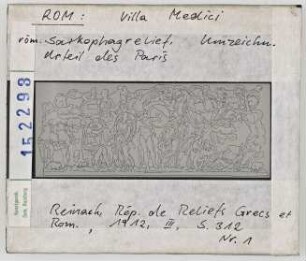 ROM: Villa Medici
röm. Sarkophagrelief. Umzeichn.
Urteil des Paris
152298
Reinach, Rép. de Reliefs Grecs et
Rom., 1912, III, S. 312
Nr. 1